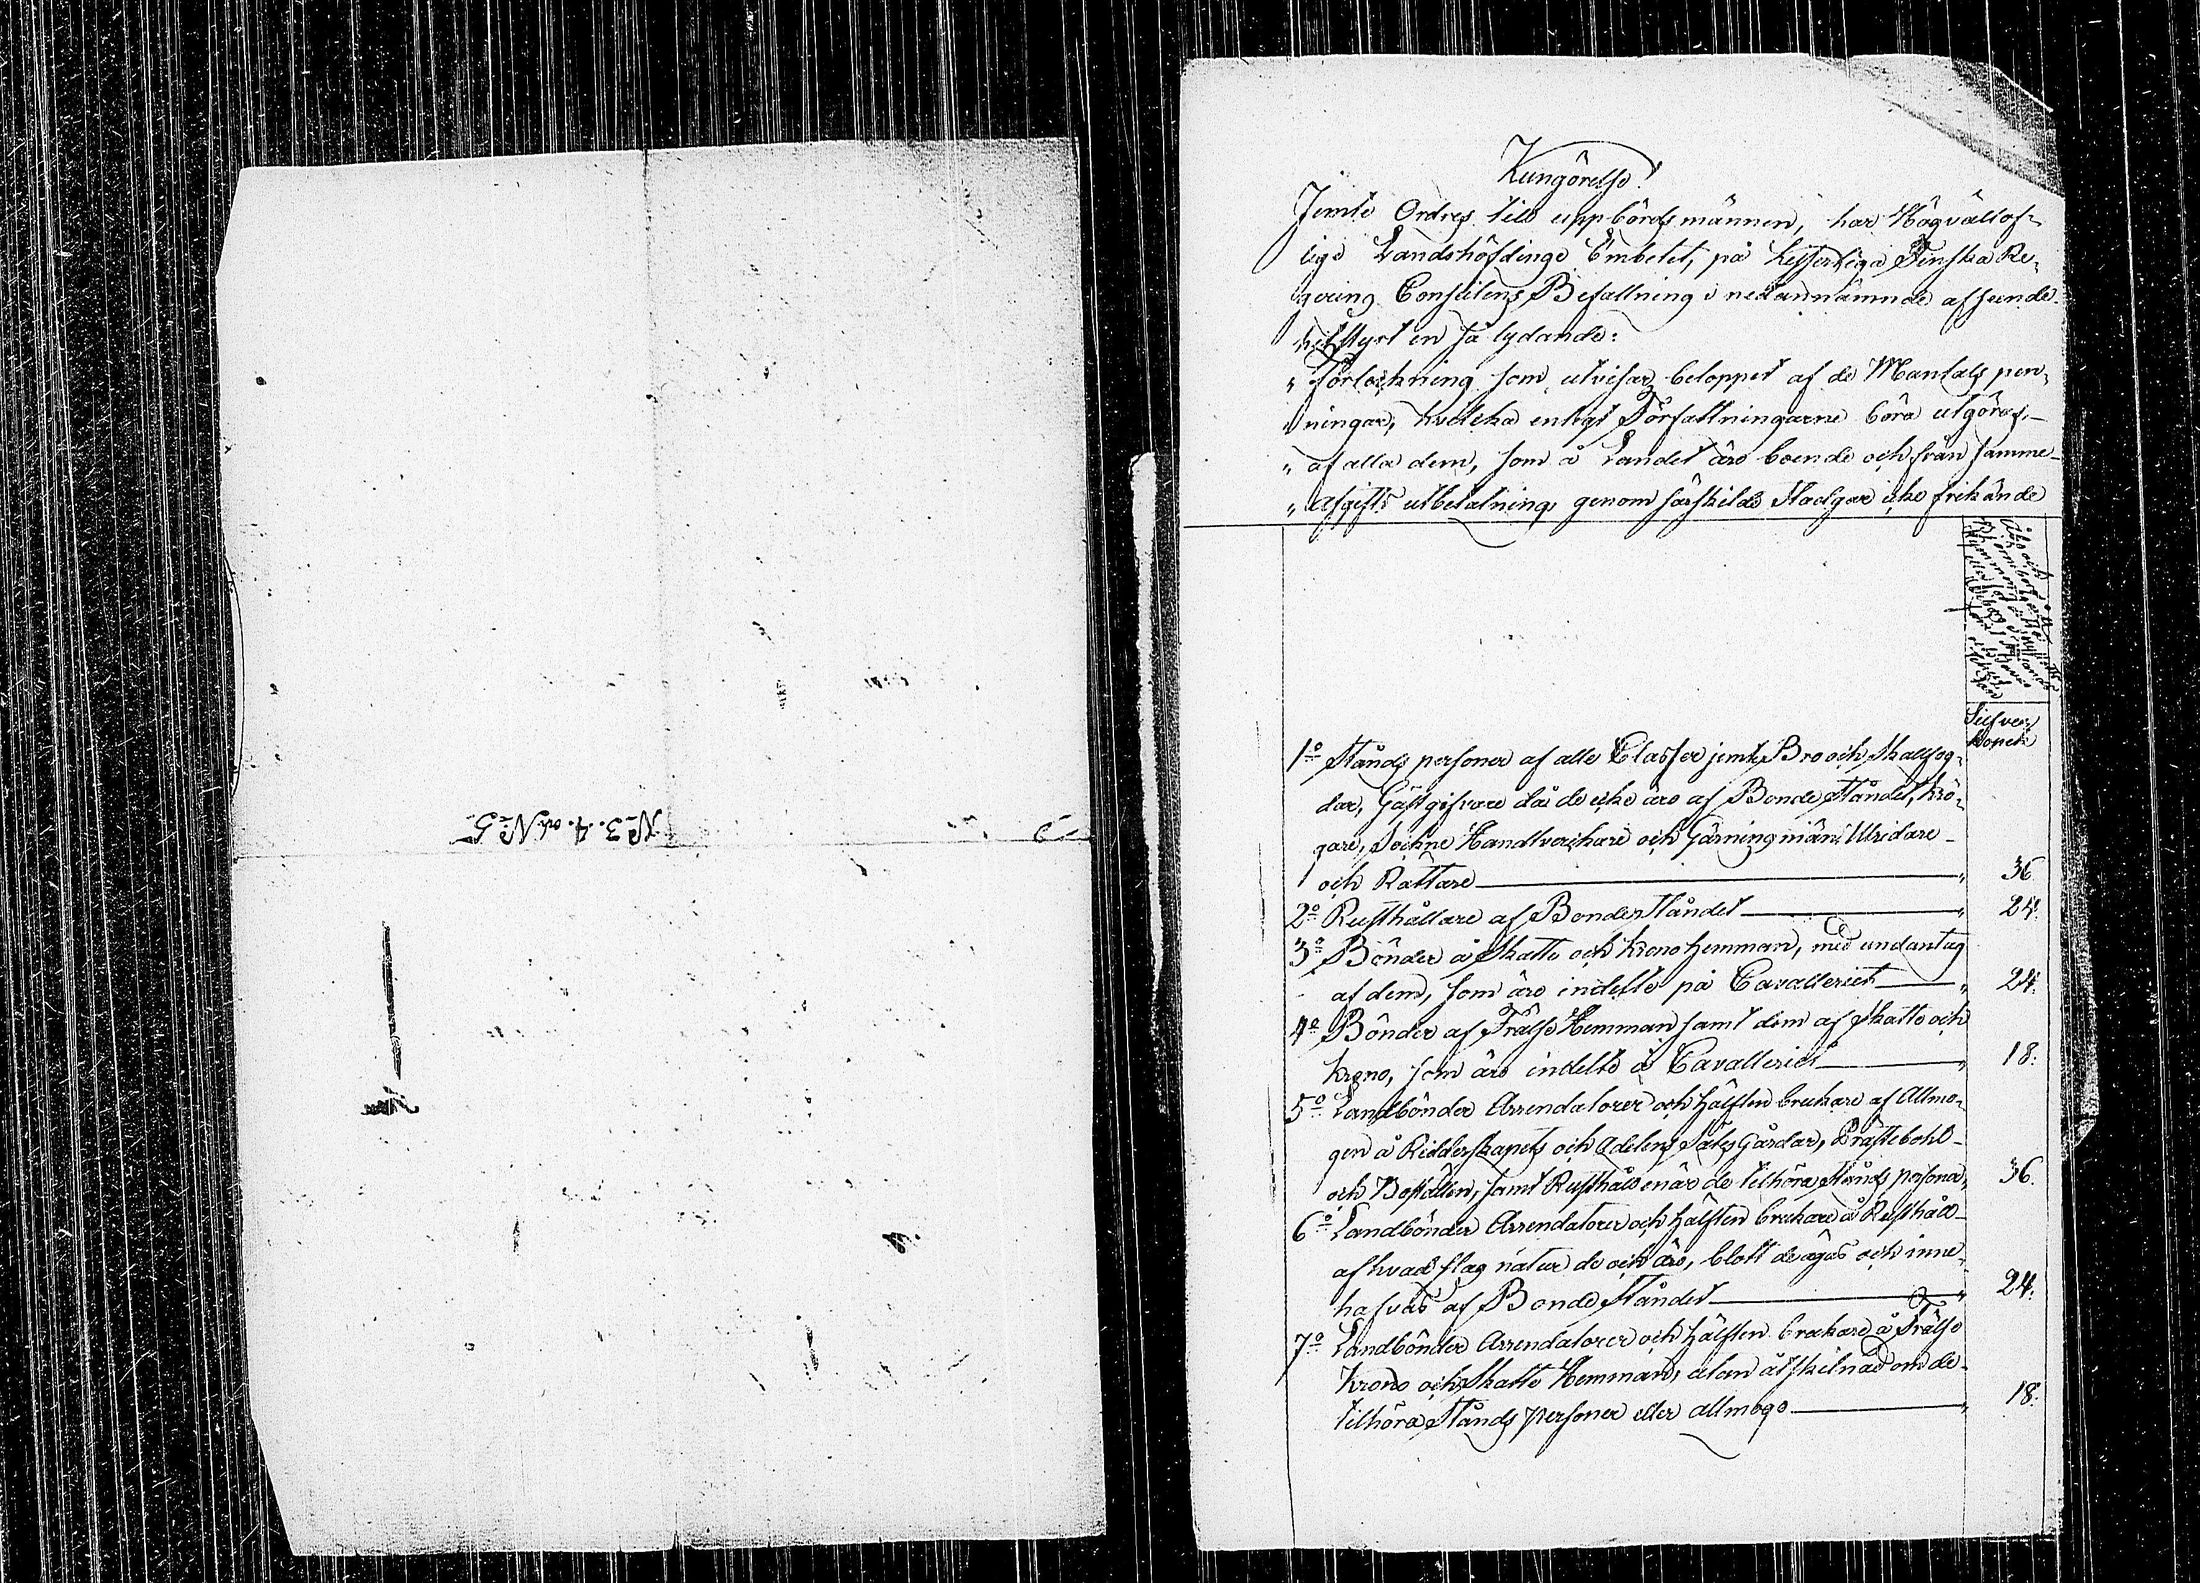 No 3. 4. och No 5
Kungörelse!
Jemte Ordres till uppbördsmännen, har Högvällof-
lige Landshöfdinge Embetet, på Kejserliga Finska Re-
gering Conseilens Befallning i nedannämnde afseende
utstyrt en så lydande:
" Förtekning som utvisar beloppet af de Mantals pen-
" ningar, hvilcka enligt Författningarne böra utgöras
" af alla dem, som å Landet äro boende och från samme
" Afgifts utbetalning, genom särskilde Stadgar icke frikände
Åbo och
Silfver
Kopek
1o Stånds personer af alle Classer jemte Bro och Skallfog-
dar, Gästgifvare då de icke äro af Bonde Ståndet, Krö-
gare, Sockne Handtverckare och Gärningsmän, Utridare
och Rättare " 36
2o Rusthållare af Bonde Ståndet " 24.
3o Bönder å Skatte och Krono Hemman, med undantag
af dem, som äro indelte på Cavalleriet " 24.
4o Bönder af Frälse Hemman samt dem af Skatte och
Krono, som äro indelte å Cavalleriet " 18.
5o Landbönder Arrendatorer och Hälften brukare af Allmo-
gen å Ridderskapets och Adelens Säts Gårdar, Prästebohl
och Boställen, samt Rusthåll enär de tilhöra Stånds personer, 36.
6o Landbönder Arrendatorer och Hälften brukare å Rusthåll
af hvad slag natur de och äro, blott de ägas och inne-
hafvas af Bonde Ståndet " 24.
7o Landbönder Arrendatorer och Hälften brukare å Frälse
Krono och Skatte Hemman, utan åtskilnad om de
tilhöra Stånds Personer eller allmoge " 18.